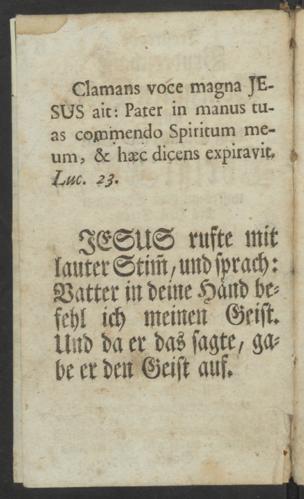 Clamans voce magna JE-
SUS ait: Pater in manus tu-
as commendo Spiritum me-
um, & hæc dicens expiravit.
Luc. 23.
JESUS rufte mit
lauter Stim̃, und sprach:
Vatter in deine Händ be-
fehl ich meinen Geist.
Und da er das sagte, ga-
be er den Geist auf.